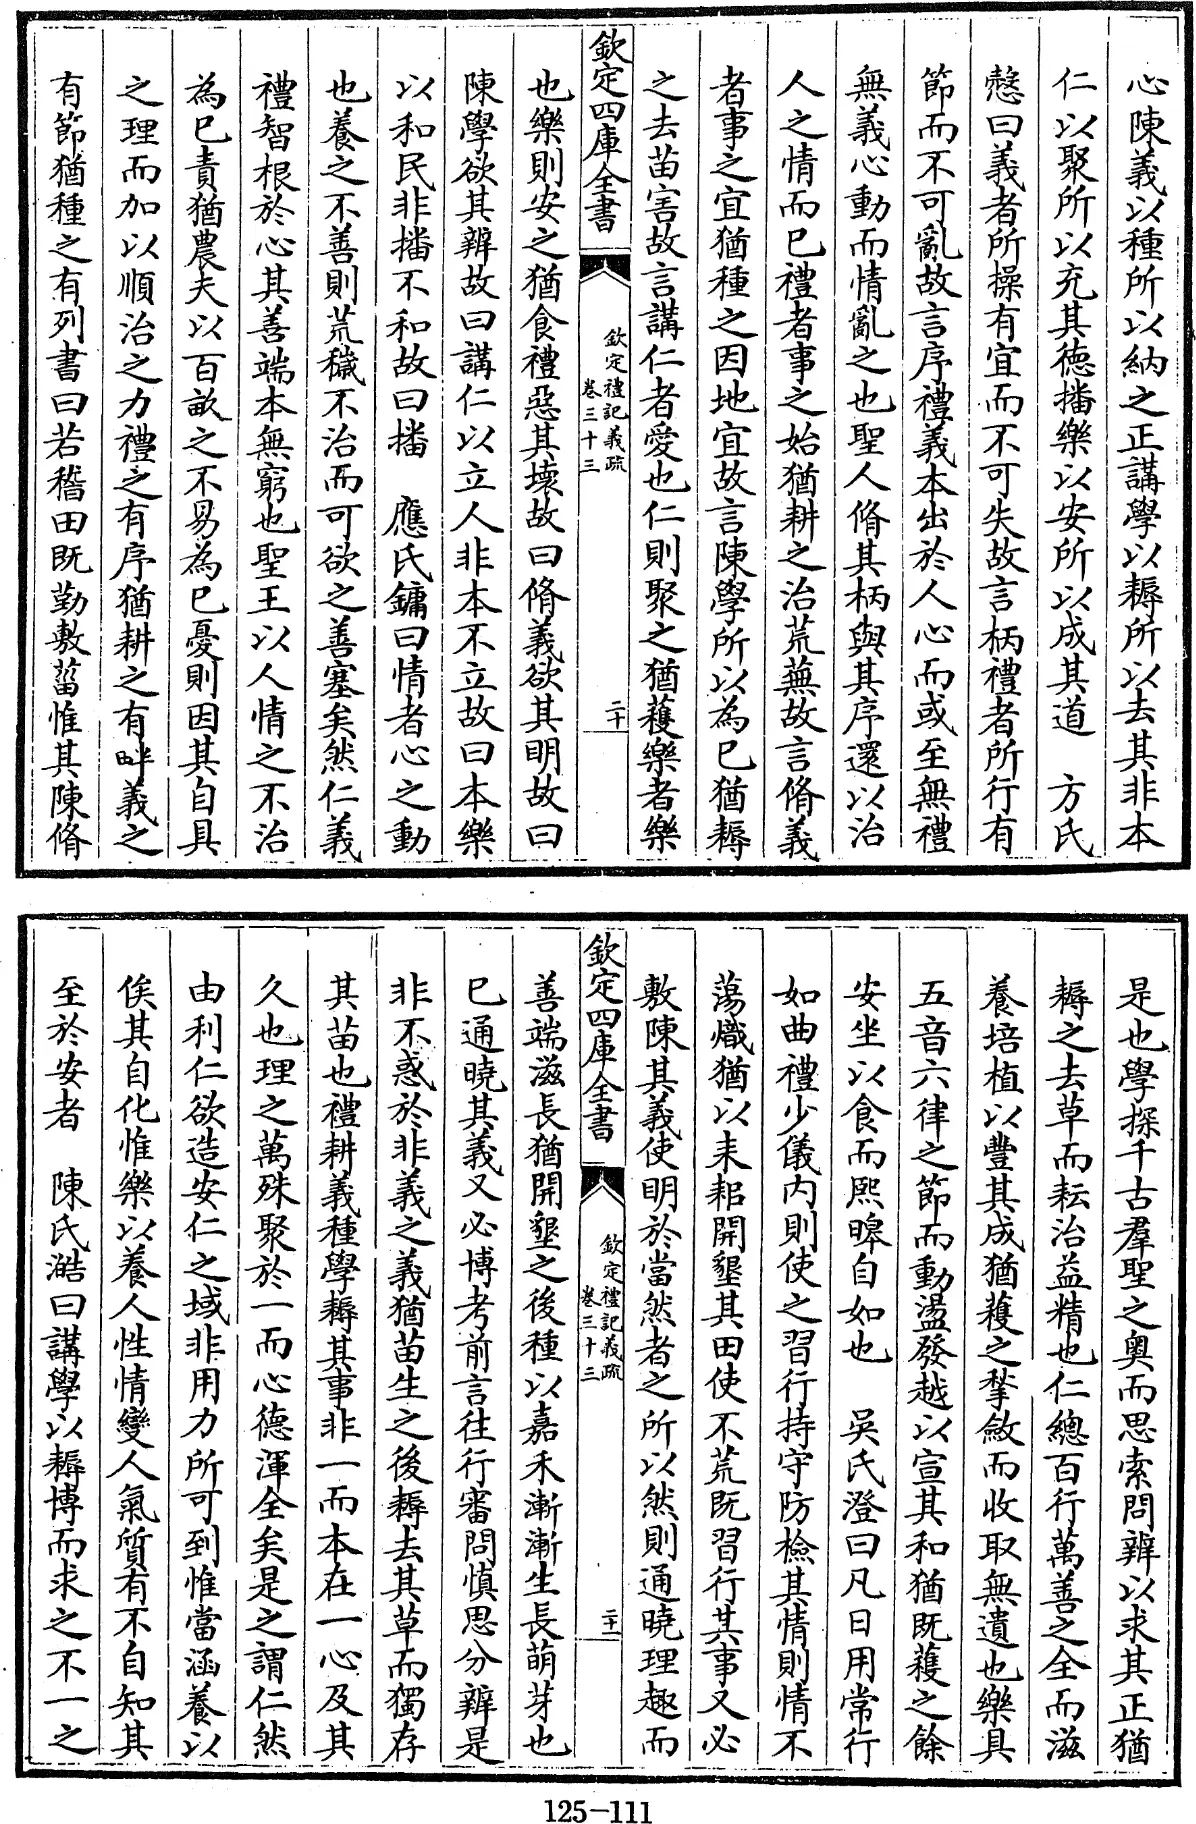 心陳義以種所以納之正講學以耨所以去其非本
仁以聚所以充其德播樂以安所以成其道　方氏
慤曰義者所操有宜而不可失故言柄禮者所行有
節而不可亂故言序禮義本出於人心而或至無禮
無義心動而情亂之也聖人脩其柄與其序還以治
人之情而已禮者事之始猶耕之治荒蕪故言脩義
者事之宜猶種之因地宜故言陳學所以為已猶耨
之去苗害故言講仁者愛也仁則聚之猶穫樂者樂
欽定四庫全書
欽定禮記義疏
卷三十三
二十
也樂則安之猶食禮惡其壞故曰脩義欲其明故曰
陳學欲其辨故曰講仁以立人非本不立故曰本樂
以和民非播不和故曰播　應氏鏞曰情者心之動
也養之不善則荒穢不治而可欲之善塞矣然仁義
禮智根於心其善端本無窮也聖王以人情之不治
為已責猶農夫以百畝之不易為已憂則因其自具
之理而加以順治之力禮之有序猶耕之有畔義之
有節猶種之有列書曰若稽田既勤敷菑惟其陳脩
是也學探千古羣聖之奥而思索問辨以求其正猶
耨之去草而耘治益精也仁總百行萬善之全而滋
養培植以豐其成猶穫之揫斂而收取無遺也樂具
五音六律之節而動盪發越以宣其和猶既穫之餘
安坐以食而熙皥自如也　吳氏澄曰凡日用常行
如曲禮少儀内則使之習行持守防檢其情則情不
蕩熾猶以耒耜開墾其田使不荒既習行其事又必
敷陳其義使明於當然者之所以然則通曉理趣而
欽定四庫全書
欽定禮記義疏
卷三十三
二十一
善端滋長猶開墾之後種以嘉禾漸漸生長萌芽也
已通曉其義又必博考前言往行審問慎思分辨是
非不惑於非義之義猶苗生之後耨去其草而獨存
其苗也禮耕義種學耨其事非一而本在一心及其
久也理之萬殊聚於一而心德渾全矣是之謂仁然
由利仁欲造安仁之域非用力所可到惟當涵養以
俟其自化惟樂以養人性情變人氣質有不自知其
至於安者　陳氏澔曰講學以耨博而求之不一之
125-111